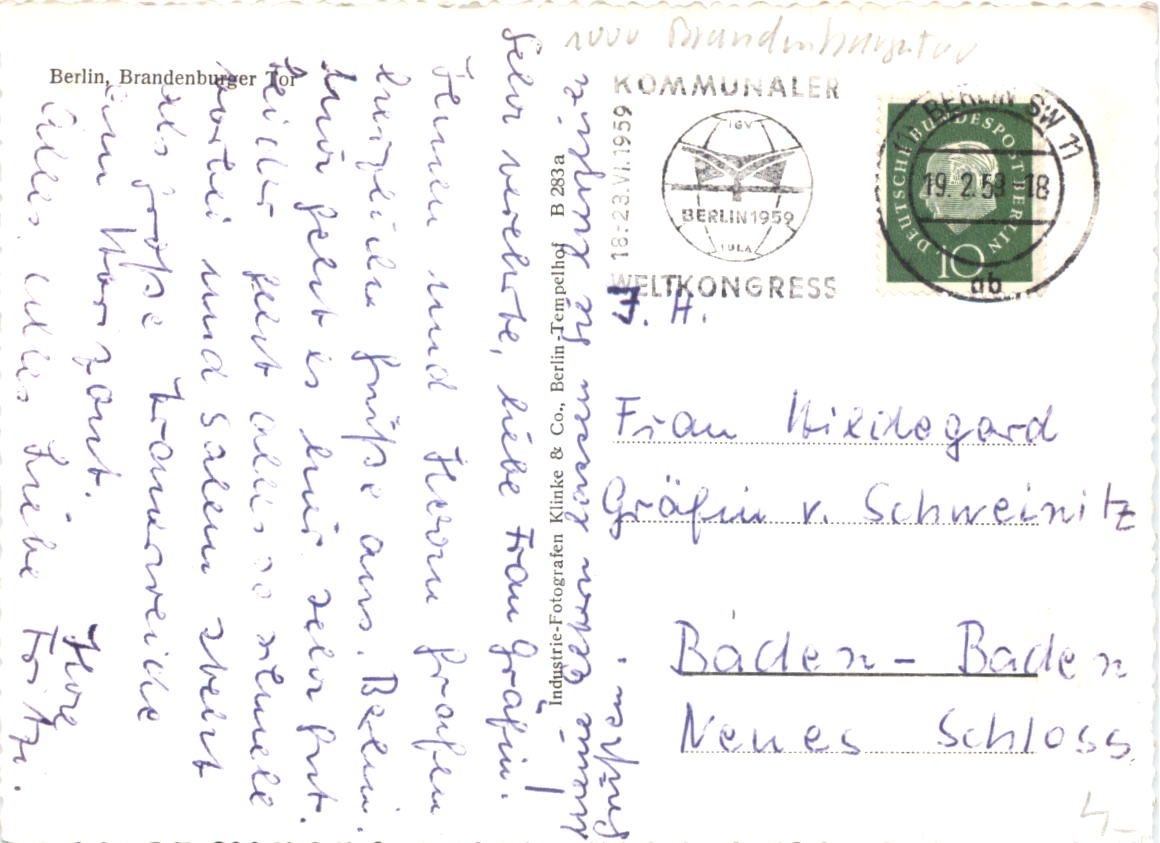 1000 Brandenburger Tor
Berlin, Brandenburger Tor
Sehr verehrte, liebe Frau Gräfin!
Ihnen und Herrn Grafen
herzliche Grüße aus Berlin.
Mir geht es hier sehr gut.
Leider geht alles so schnell
vorbei und Salem steht
als große Trauerweide
am Horizont.
Alles, alles Liebe Ihre
Fritzi.
Meine Eltern lassen Sie
grüßen.
Industrie-Fotografen Klinke & Co., Berlin-Tempelhof B 283a
KOMMUNALER
18.-23.VI.1959
IGV
BERLIN 1959
IULA
WELTKONGRESS
BERLIN SW 11
19.2.59-18
ab
DEUTSCHE BUNDESPOST BERLIN
10
I. H.
Frau Hildegard
Gräfin v. Schweinitz
Baden-Baden
Neues Schloss